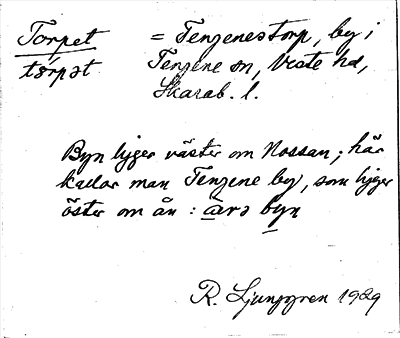 Torpet = Tengenestorp, by i
tɷrpət Tengene sn, Viste hd,
Skarab. l.
Byn ligger väster om Nossan; här
kallar man Tengene by, som ligger
öster om ån : byn
R. Ljunggren 1929